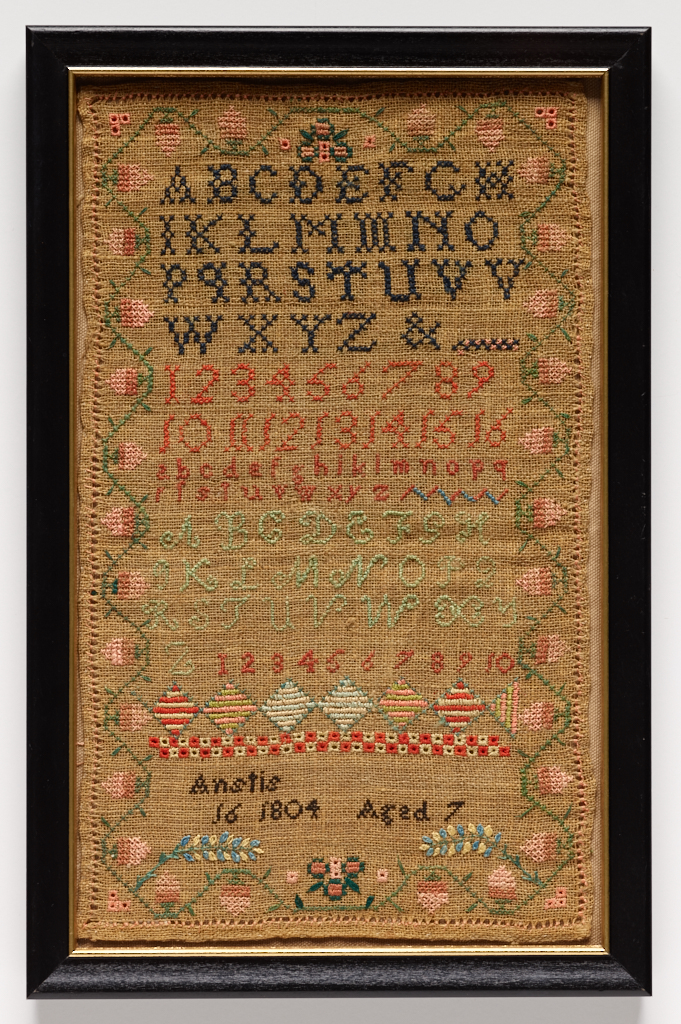 A B C D E F G H
I K L M M N O
P Q R S T U V V
W X Y Z &
1 2 3 4 5 6 7 8 9
10 11 12 13 14 15 16
a b c d e f g h i k l m n o p q
r s t u v w x y z
A B C D E F G H
I K L M N O P Q
R S T U V W X Y
Z 1 2 3 4 5 6 7 8 9 10
Anstie
16 1804 Aged 7